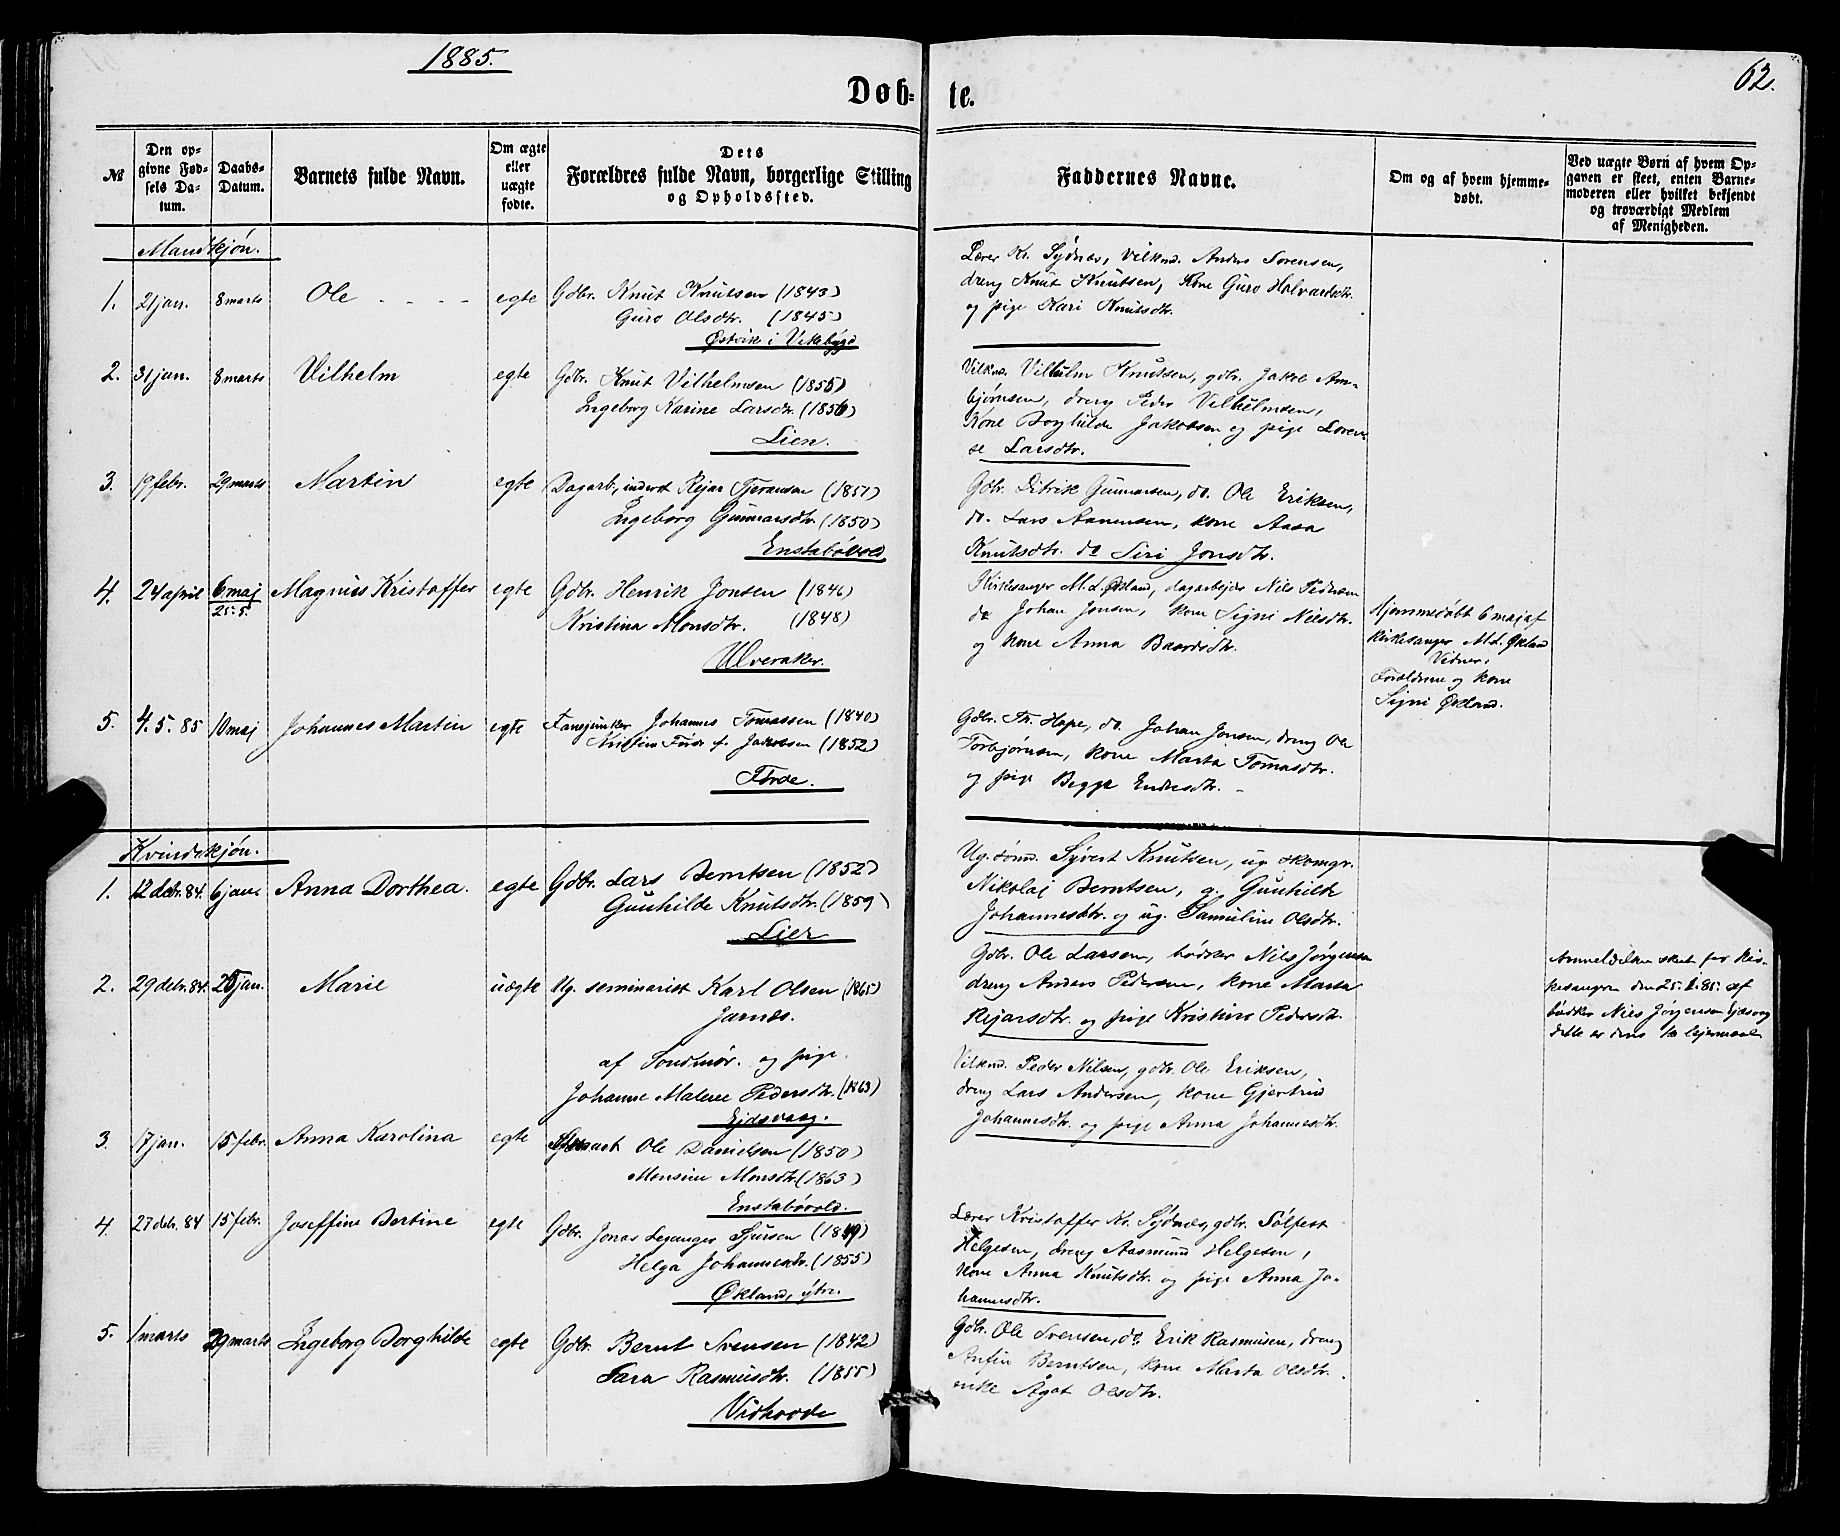 1885.
62.
Døb- te.
№
Den op-
givne Fød-
sels Da-
tum.
Daabs-
Datum.
Barnets fulde Navn.
Om ægte
eller
uægte
fødte.
Dets
Forældres fulde Navn, borgerlige Stilling
og Opholdssted.
Faddernes Navne.
Om og af hvem hjemme-
døbt.
Ved uægte Børn af hvem Op-
gaven er skeet, enten Barne-
moderen eller hvilket bekjendt
og troværdigt Medlem
af Menigheden.
Mandkjøn.
1. 21 jan. 8 marts Ole egte Gdbr. Knut Knutsen (1843)
Guro Olsdtr. (1845)
Østvik i Vikebygd
Lærer Kr. Sydnæs, Vilknd. Anders Sørensen,
dreng Knut Knutsen, Kone Guro Halvardsdtr.
og pige Kari Knutsdtr.
2. 31 jan. 8 marts Vilhelm egte Gdbr. Knut Vilhelmsen (1855)
Ingeborg Karine Larsdtr. (1856)
Lien.
Vilknd. Vilhelm Knutsen, gdbr. Jakob Am-
bjørnsen, dreng Peder Vilhelmsen,
Kone Borghilde Jakobsen og pige Loren-
se Larsdtr.
3. 19 febr. 29 marts Martin egte Dagarb., inderst Rejar Tjeransen (1851)
Ingeborg Gunnarsdtr. (1850)
Enstabøvold
Gdbr. Didrik Gunnarsen, do. Ole Eriksen,
do. Lars Aanensen, kone Aasa
Knutsdtr. do Siri Jonsdtr.
4. 24 april 6 maj
25.5.
Magnus Kristoffer egte Gdbr. Henrik Jonsen (1846)
Kristina Monsdtr. (1848)
Ulveraker.
Kirkesanger M. L. Økland, dagarbejder Nils Pedersen
do Johan Jonsen, kone Signi Nilsdtr.
og kone Anna Baardsdtr.
Hjemmedøbt 6 maj af
kirkesanger M.L. Økland
Vidner:
Forældrene og kone
Signi Økland.
5. 4. 5. 85 10 maj Johannes Martin egte Fanejunker Johannes Tomassen (1840)
Kristine Førde f. Jakobsen (1852)
Førde.
Gdbr. Th. Hope, do. Johan Jonsen, dreng Ole
Torbjørnsen, kone Marta Tomasdtr.
og pige Begge Endresdtr.
Kvindekjøn.
1. 12 debr. 84. 6 jan. Anna Dorthea. egte Gdbr. Lars Berntsen (1852)
Gunhilde Knutsdtr. (1859)
Lier
Ug. Sývert Knutsen, ug skomgr.
Nikolaj Berntsen, g. Gunhilde
Johannesdtr. og ug. Samuline Olsdtr.
2. 29 debr. 84. 25 jan. Marie uægte Ug. seminarist Karl Olsen (1865)
Jarnæs.
af Søndmør. og pige.
Johanne Malene Pedersdtr. (1863)
Ejdsvaag.
Gdbr. Ole Larsen, bødker Nils Jørgensen
dreng Anders Pedersen, kone Marta
Rejarsdtr. og pige Kristine Pedersdtr.
Anmeldelsen skeet for kir-
kesangeren den 25.1.85. af
bødker Nils Jørgensen Ejdsvaag
dette er deres 1ste lejermaal
3. 17 jan. 15 febr. Anna Karolina egte Ole Danielsen (1850)
Monsine Monsdtr. (1863)
Enstabøvold.
Vilknd. Peder Nilsen, gdbr. Ole Eriksen,
dreng Lars Andersen, kone Gjertrud
Johannesdtr. og pige Anna Johannesdtr.
4. 27 debr. 84 15 febr. Joseffine Bertine egte Gdbr. Jonas Leganger Sjursen (1849)
Helga Johannesdtr. (1855)
Økland, ytre.
Lærer Kristoffer Kr. Sydnæs, gdbr. Sølfest
Helgesen, dreng Aasmund Helgesen,
kone Anna Knutsdtr. og pige Anna Jo-
hannesdtr.
5. 1 marts 29 marts Ingeborg Borghilde egte Gdbr. Bernt Svensen (1842)
Sara Rasmusdtr. (1855)
Vidhovde
Gdbr. Ole Svensen, do. Erik Rasmusen, dreng
Anfin Berntsen, kone Marta Olsdtr.
enke Ågot Olsdtr.